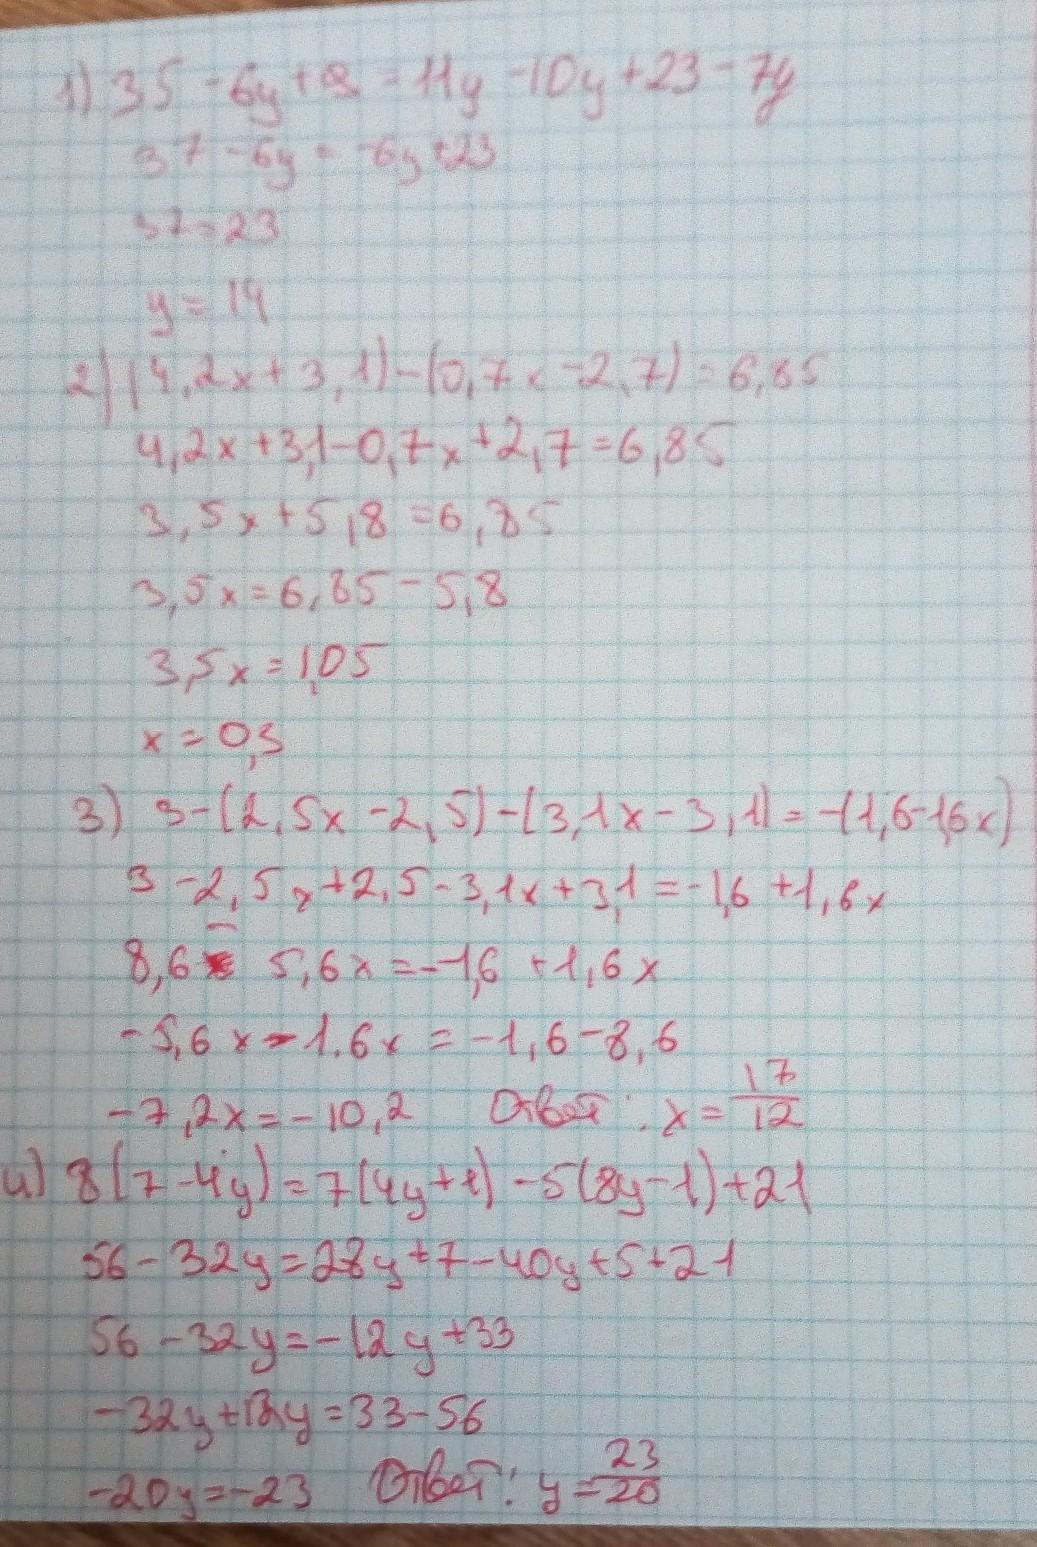 1) 35 - 6y + 2 = 11y - 10y + 23 - 7y
37 - 6y = -6y + 23
37 = 23
y = 14
2) (4,2x + 3,1) - (0,7x - 2,7) = 6,85
4,2x + 3,1 - 0,7x + 2,7 = 6,85
3,5x + 5,8 = 6,85
3,5x = 6,85 - 5,8
3,5x = 1,05
x = 0,3
3) 3 - (2,5x - 2,5) - (3,1x - 3,1) = -(1,6 - 1,6x)
3 - 2,5x + 2,5 - 3,1x + 3,1 = -1,6 + 1,6x
8,6 - 5,6x = -1,6 + 1,6x
-5,6x - 1.6x = -1,6 - 8,6
-7,2x = -10,2 Ответ: x = 17/12
4) 8(7 - 4y) = 7(4y + 1) - 5(8y - 1) + 21
56 - 32y = 28y + 7 - 40y + 5 + 21
56 - 32y = -12y + 33
-32y + 12y = 33 - 56
-20y = -23 Ответ: y = 23/20